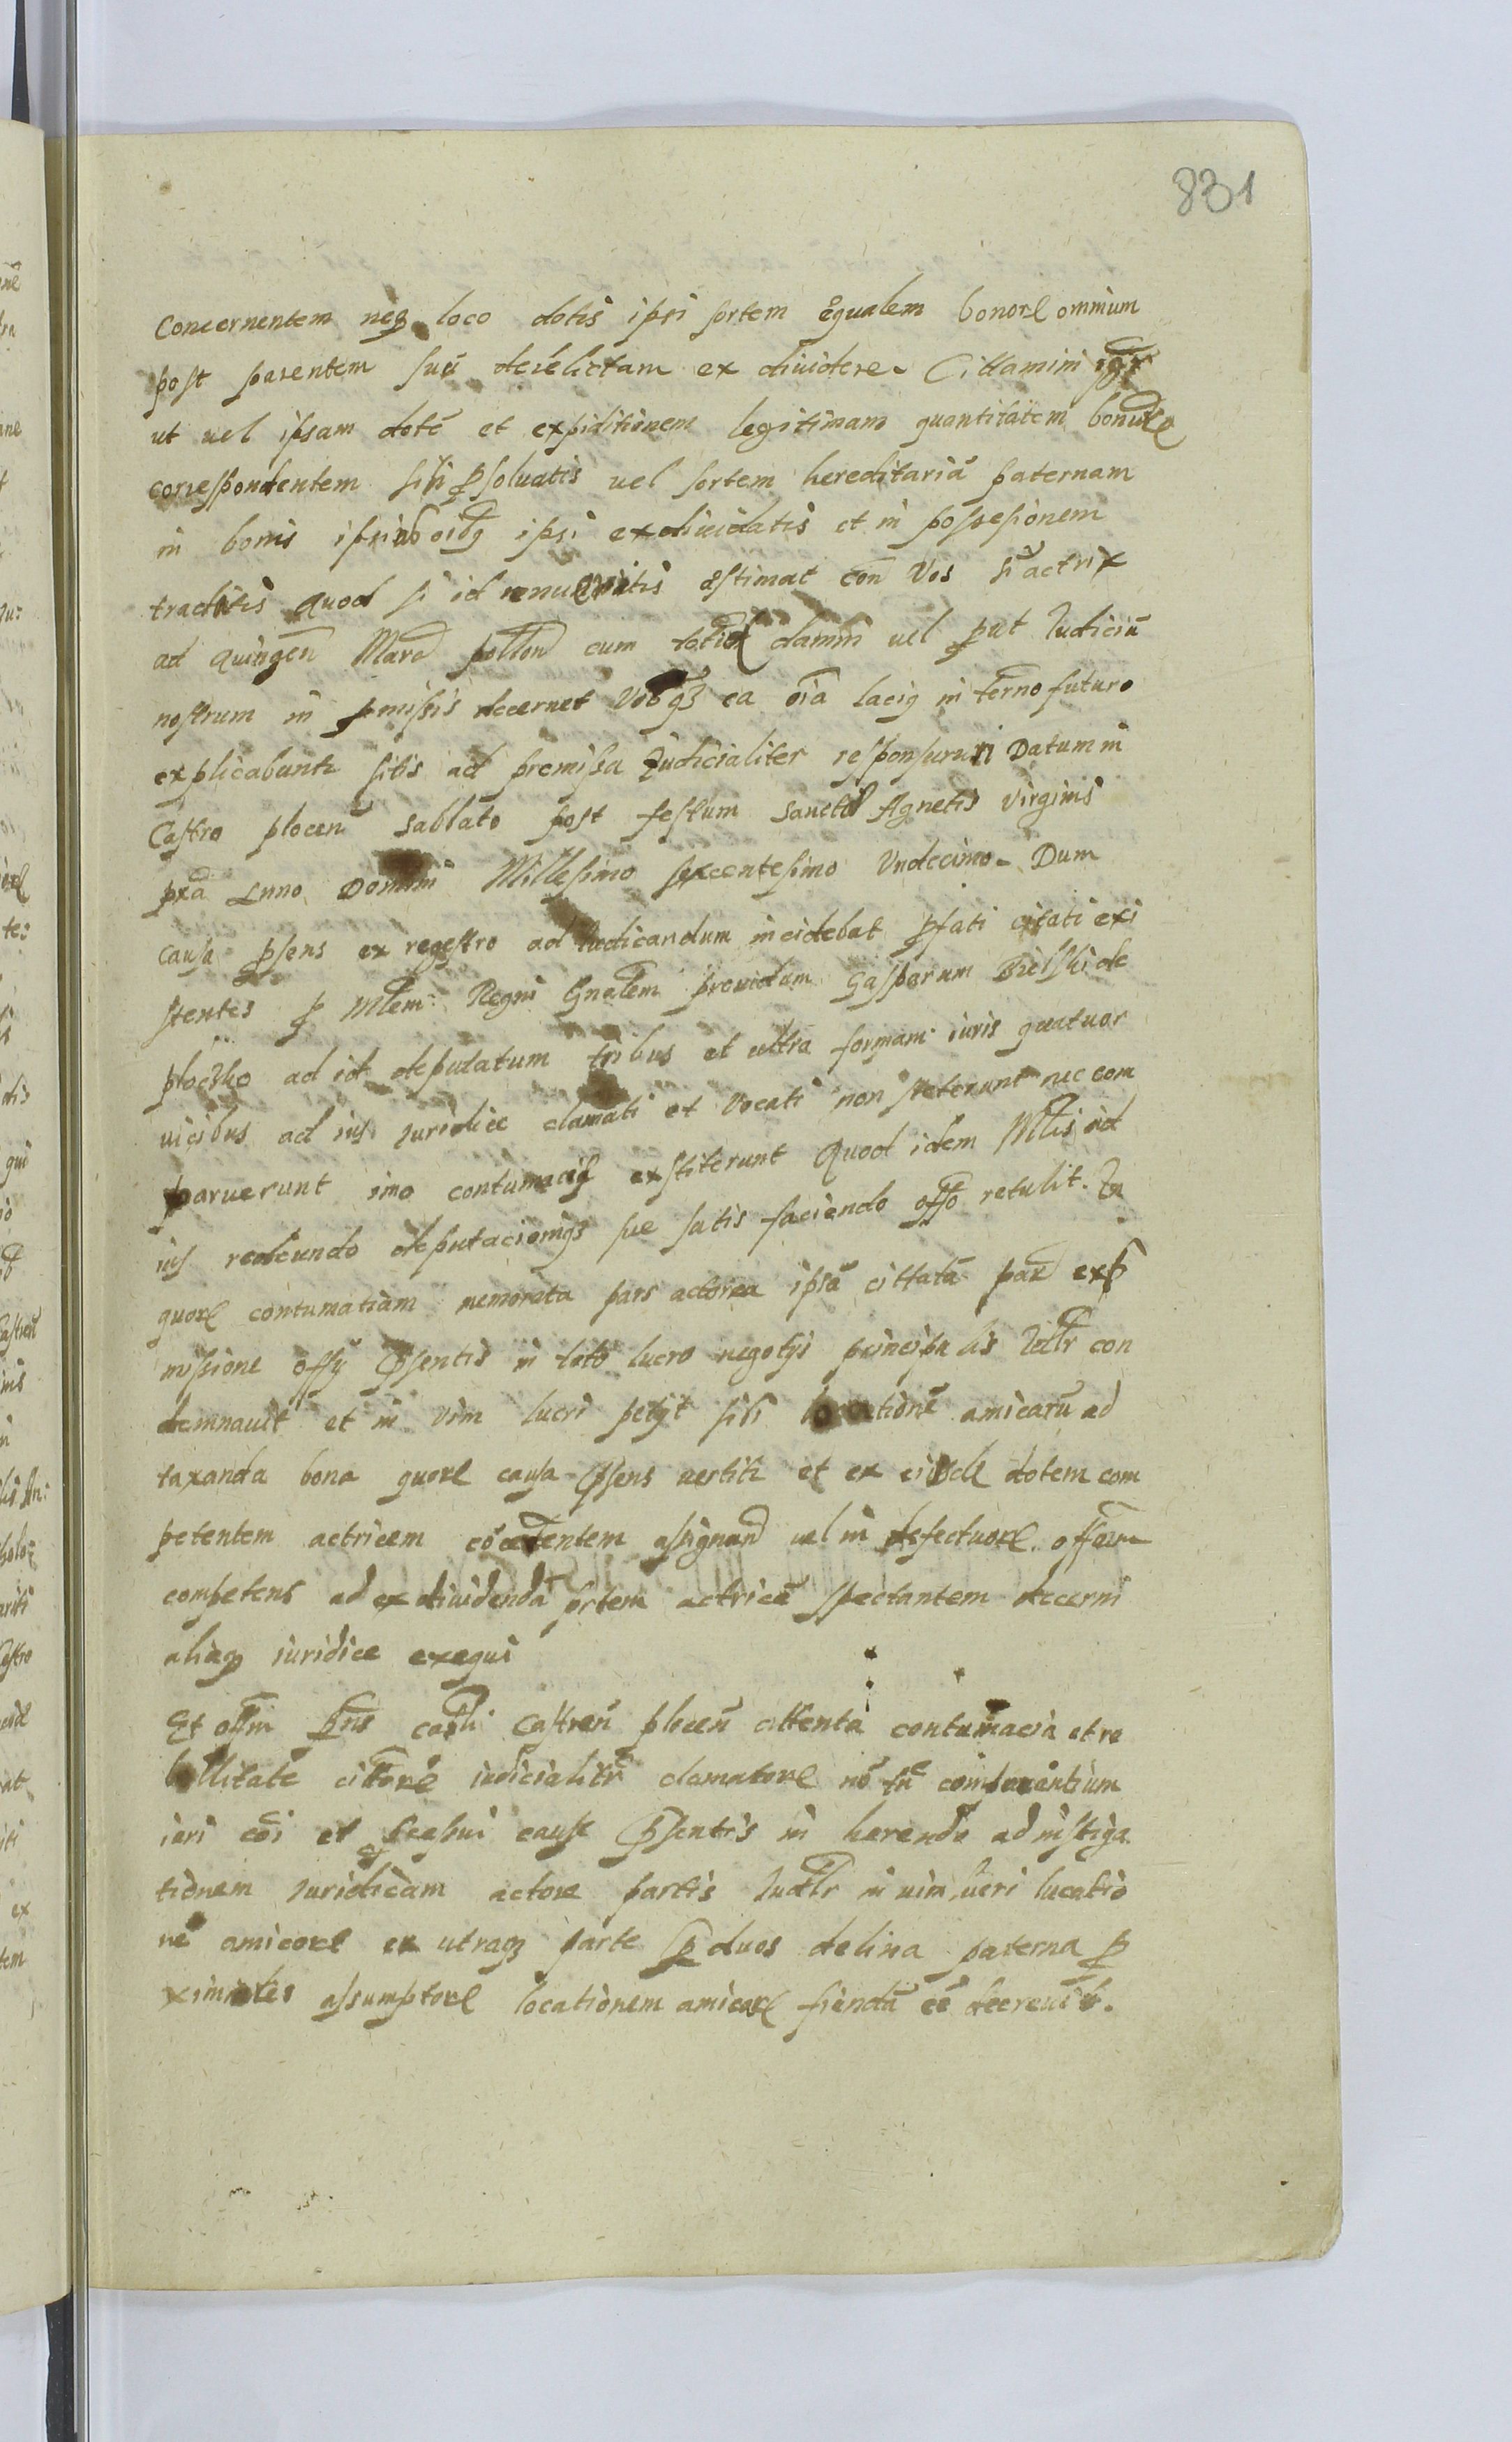 831
Concernentem neq loco dotis ipsi sortem equalem bonor omnium
post parentem suu derelictam ex diuidere. Cittamini igr
ut uel ipsam dotē et expiditionem legitimam quantitatem bonor
correspondentem sibi psoluatis uel sortem hereditariā paternam
in bonis oibq ipsi exdiuidatis et in possesionem
tradatis quod si id renueritis æstimat con Vos actrix
ad quingen Marc pollon cum totid damni uel put Iudiciū
nostrum in pmissis decernet Vos ea oia laciq in termo futuro
explicabunt sitis ad premissa Iudicialiter responsururi Datum in
Castro plocen sabbato post festum sanctæ Agnetis Virginis
pxa Anno Domini Millesimo sexcentesimo Vndecimo. Dum
causa psens ex regestro ad Iudicandum incidebat pfati citati exi
stentes p Mtem Regni Gnalem prouidum Gasparum Bielski de
ploczko ad id deputatum tribus et ultra formam iuris quatuor
uicibus ad ius iuridice clamati et Vocati non steterunt nec com
paruerunt imo contumaciq exstiterunt Quod idem Mtlis ad
ius redeundo deputacioniqs sue satis faciendo offo retulit. In
quor contumatiam memorata pars actorea ipsā cittatā par exp
missione offy psentis in toto lucro negotÿ principalis Iudlr con
demnauit et in Vim lucri petÿt sibi locationē amicarū ad
taxanda bona quor causa psens uertitr et ex eisde dotem com
petentem actricem assignand uel in defectuor. offam
competens ad ex diuidendā sortem actricē spectantem decerni
aliaq iuridice exequi
Et offm pns capli Castren plocen attenta contumacia et re
bellitate cittor iudicialitr clamator nō tn comparantium
iuri coi et pcessui cause psentis in herendo ad instiga
tionem Iuridicam actore partis Iudlr in uim lucri locatio
nē amicor ex utraq parte p duos de linea paterna p
ximiles assumptor locationem amicor fiendā eē decreuit.